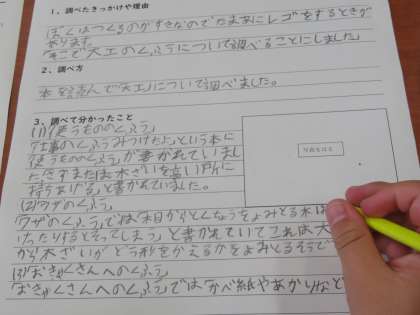 1、調べたきっかけや理由
ぼくはつくるのがすきなのでたまあにレゴをするときが
あります。
そこで大工のくふうについて調べることにしました。
2、調べ方
本を読んで「大工」について調べました。
3、調べて分かったこと
(1)使うもののくふう
「仕事のくふうみつけたよ」という本に
「使うもののくふう」が書かれていまし
木ざいを高い所に
持ちあげる」と書かれていました。
(2)ワザのくふう
「ワザのくふう」では「木目からとくちょうをよみとる木は
けったりするとそってしまう」と書かれていてこれは大
から木ざいがどう形をかえるかをよみとるそうで
(3)おきゃくさんへのくふう
「おきゃくさんへのくふう」では「かべ紙やあかりなど
写真をはる